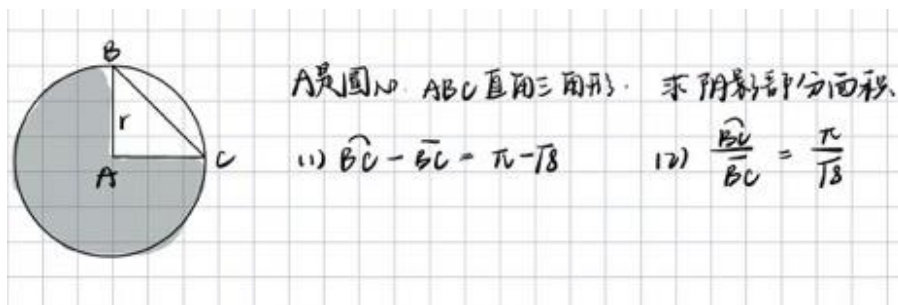 B
r
A
C
A是圆心. ABC直角三角形. 求阴影部分面积.
(1) \overset{⌢}{BC} - \overline{BC} = π-√8
(2) \frac{\overset{⌢}{BC}}{\overline{BC}} = \frac{π}{√8}